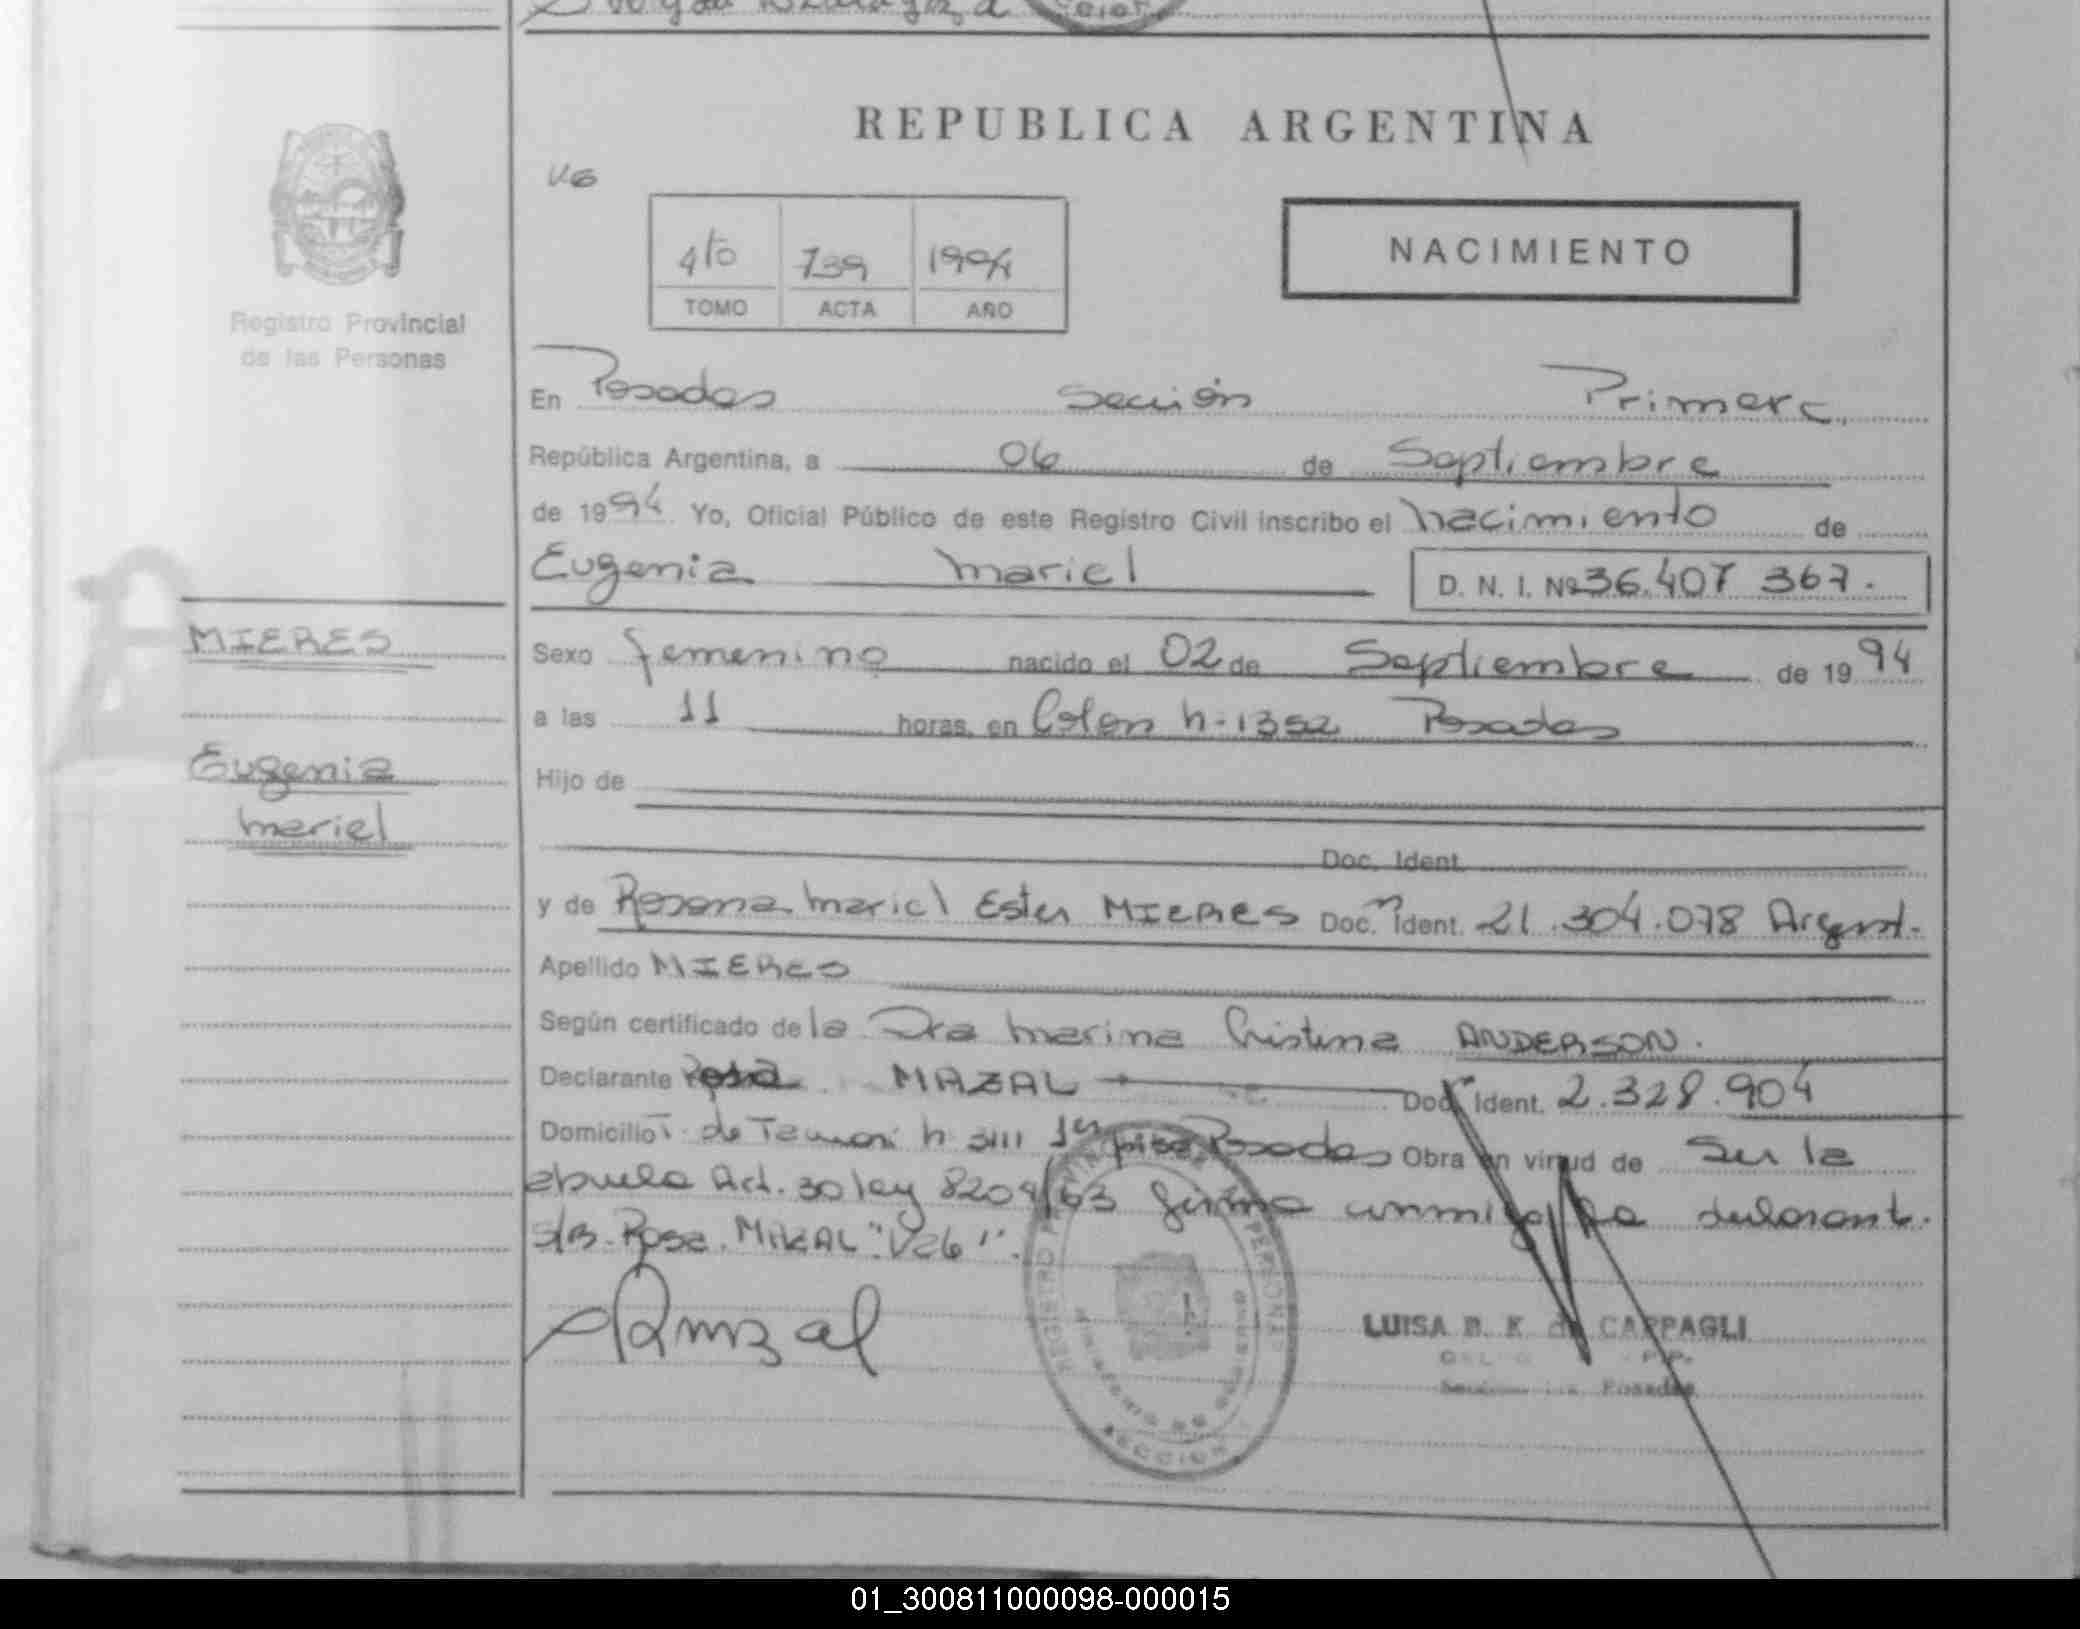 REPUBLICA ARGENTINA
V6
4to 739 1994
TOMO ACTA AÑO
NACIMIENTO
Registro Provincial
de las Personas
En Posadas Sección Primera
República Argentina, a 06 de Septiembre
de 1994 Yo, Oficial Público de este Registro Civil inscribo el nacimiento de
Eugenia Mariel
D. N. I. Nº 36.407 367.
MIERES
Eugenia
Mariel
Sexo femenino nacido el 02 de Septiembre de 1994
a las 11 horas, en Colon n-1352 Posadas
Hijo de
Doc. Ident.
y de Rosana Mariel Ester MIERES Doc. Ident. 21.304.078 Argent.
Apellido MIERES
Según certificado de la Dra Marina Cristina ANDERSON.
Declarante Rosa MAZAL Doc. Ident. 2.328.904
Domicilio T. de n 3111 1er piso Posadas Obra en virtud de Ser la
abuela Art. 30 ley 8204/63 firma conmigo la declarant.
S/B. Rosa "V26".
RMzal
REGISTRO PERSONAS
MINISTERIO DE GOBIERNO
SECCION
LUISA B. K. de CAPPAGLI
Posadas
01_300811000098-000015